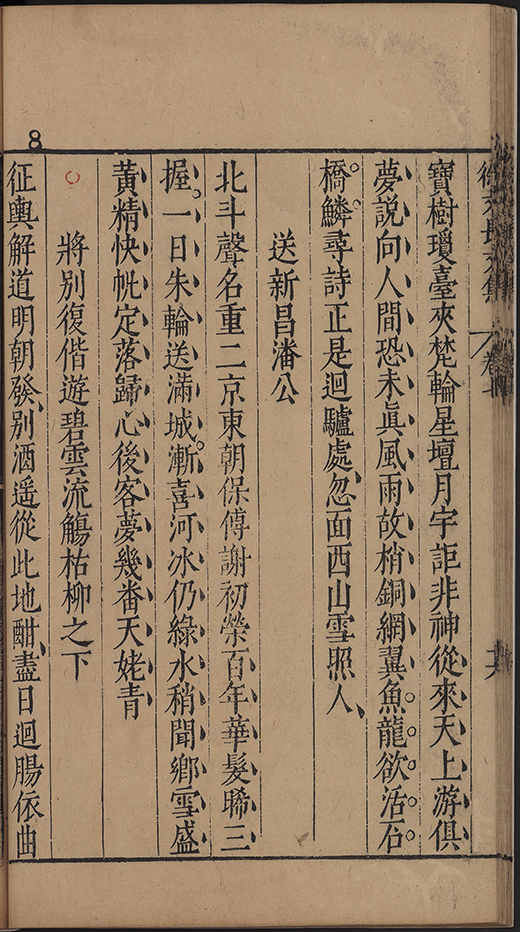 寶樹瓊臺夾梵輪星壇月宇詎非神從來天上游俱
夢說向人間恐未眞風雨故梢銅網翼魚龍欲活石
橋鱗尋詩正是迴驢處忽面西山雪照人
送新昌潘公
北斗聲名重二京東朝保傅謝初榮百年華髮晞三
握一日朱輪送滿城漸喜河冰仍綠水稍聞鄉雪盛
黃精快帆定落歸心後客夢幾番天姥青
將別復偕遊碧雲流觴枯柳之下
征輿解道明朝發別酒遥從此地酣盡日迴腸依曲
8